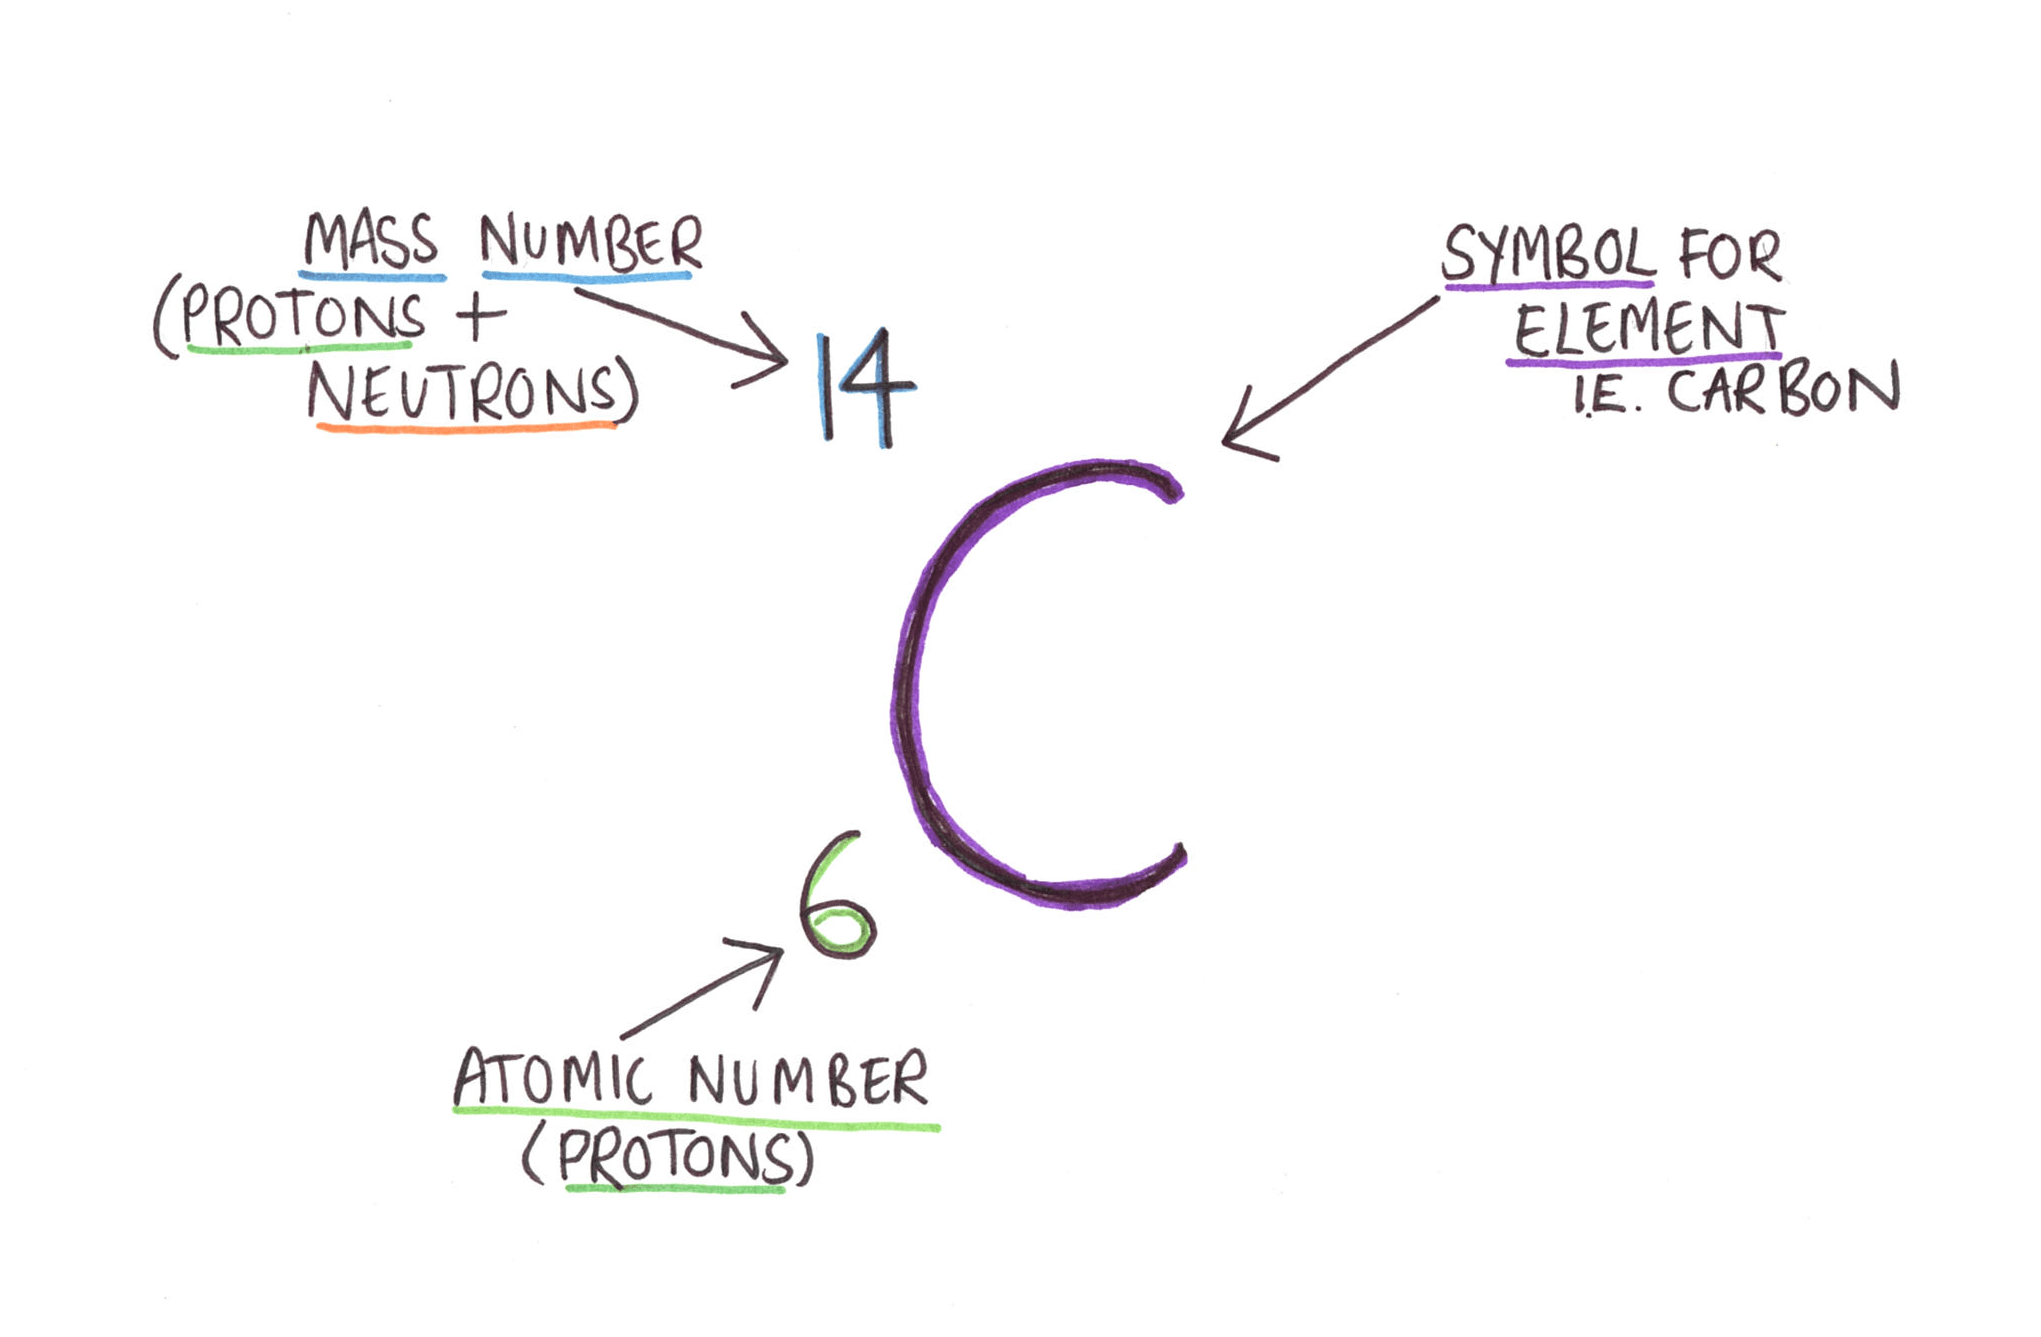 MASS NUMBER
(PROTONS +
NEUTRONS)
14
SYMBOL FOR
ELEMENT
I.E. CARBON
C
6
ATOMIC NUMBER
(PROTONS)